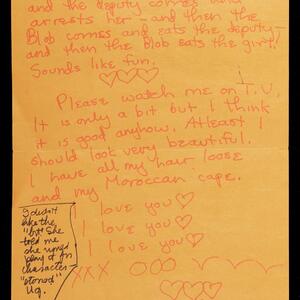 and the deputy comes and
arrests her - and then the
Blob comes and eats the deputy,
and then the Blob eats the girl!
Sounds like fun.
Please watch me on T.V.
It is only a bit but I think
it is good anyhow. Atleast I
should look very beautiful.
I have all my hair loose
and my Moroccan cape.
I love you
I love you
I love you
XXX OOO
I didn't
like the
"bit" she
told me
she
play it
character
"stoned"
Ug.